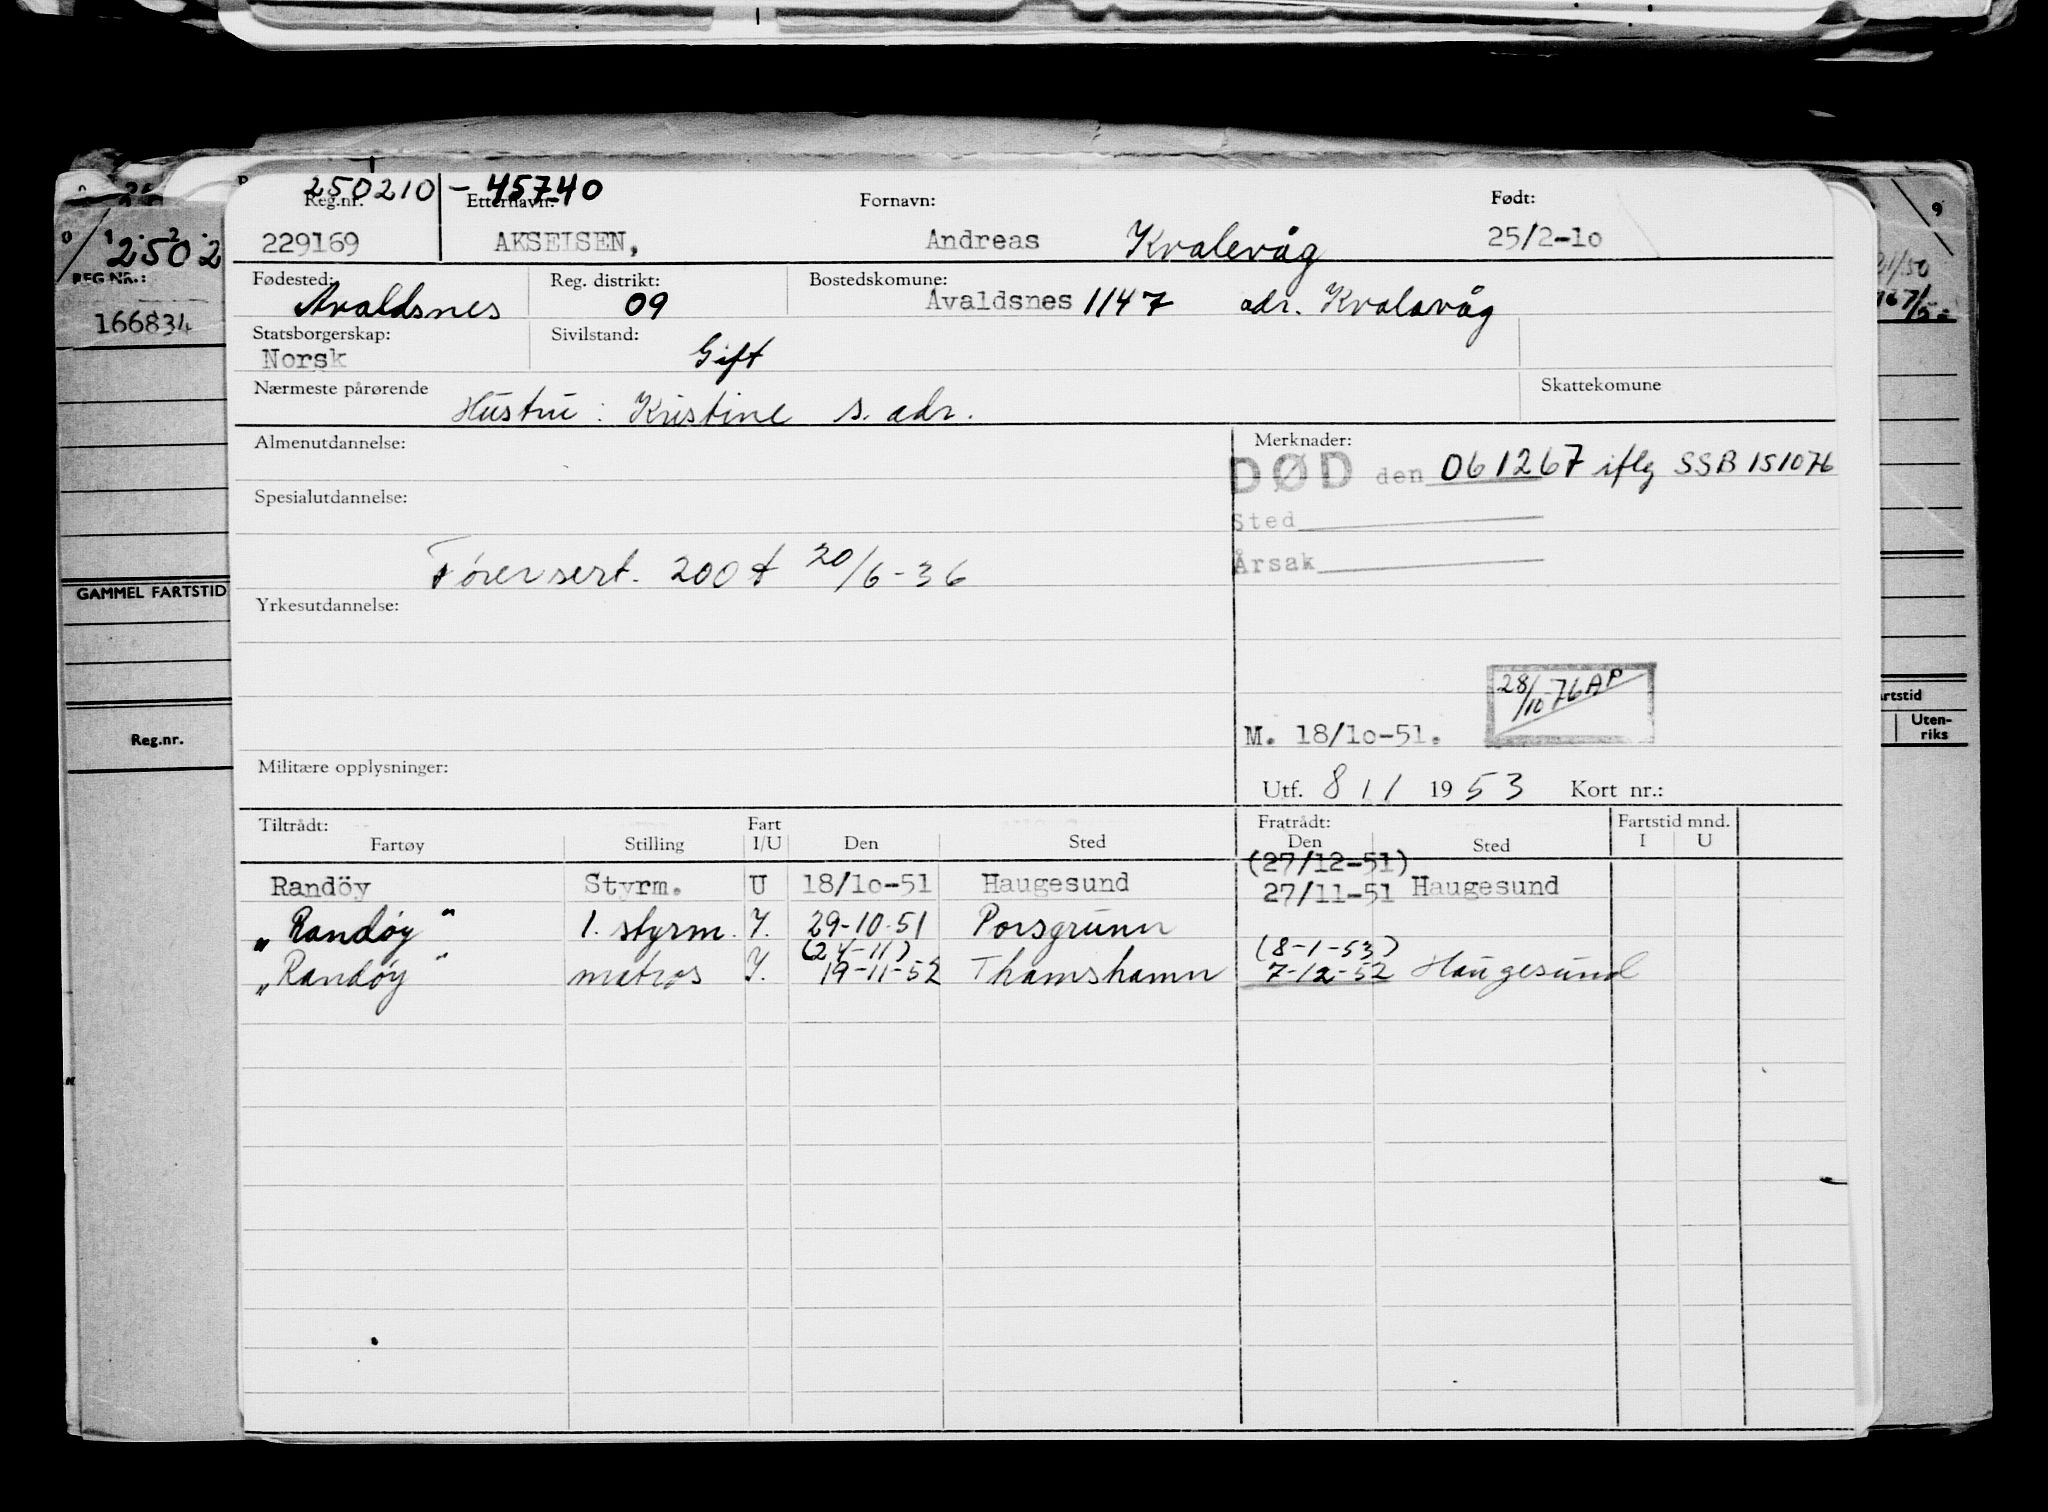 250210 - 45740
Reg.nr. Etternavn: Fornavn: Født:
229169 AKSELSEN, Andreas Kvalevåg 25/2-10
Fødested: Reg. distrikt: Bostedskomune:
Avaldsnes 09 Avaldsnes 1147 adr. Kvalavåg
Statsborgerskap: Sivilstand:
Norsk Gift
Nærmeste pårørende Skattekomune
Hustru: Kristine s. adr.
Almenutdannelse: Merknader:
DØD den 061267 iflg SSB 151076
Spesialutdannelse:
Sted
Førersert. 200 t 20/6-36
Årsak
Yrkesutdannelse:
28/10-76 AP
M. 18/10-51.
Militære opplysninger:
Utf. 8 1 / 1953 Kort nr.:
Tiltrådt: Fart Fratrådt: Fartstid mnd.
Fartøy Stilling I/U Den Sted Den Sted I U
(27/12-51)
Randöy Styrm. U 18/10-51 Haugesund 27/11-51 Haugesund
"Randøy" 1. styrm. I. 29-10-51 Porsgrunn
(24-11) (8-1-53)
"Randøy" matros I. 19-11-52 Thamshamn 7-12-52 Haugesund
2502
REG.NR.:
166834
GAMMEL FARTSTID
Reg.nr.
9
rtstid
Uten-
riks